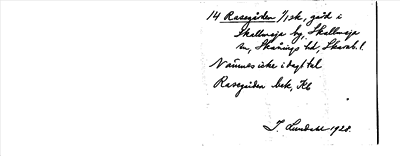 14 Rasegården 1/1 sk, gård i
Skallmeja by, Skallmeja
sn, Skånings hd, Skarab. l.
Nämnes icke i dagl. tal
Rasegården bek, Kb
J. Lundahl 1928.